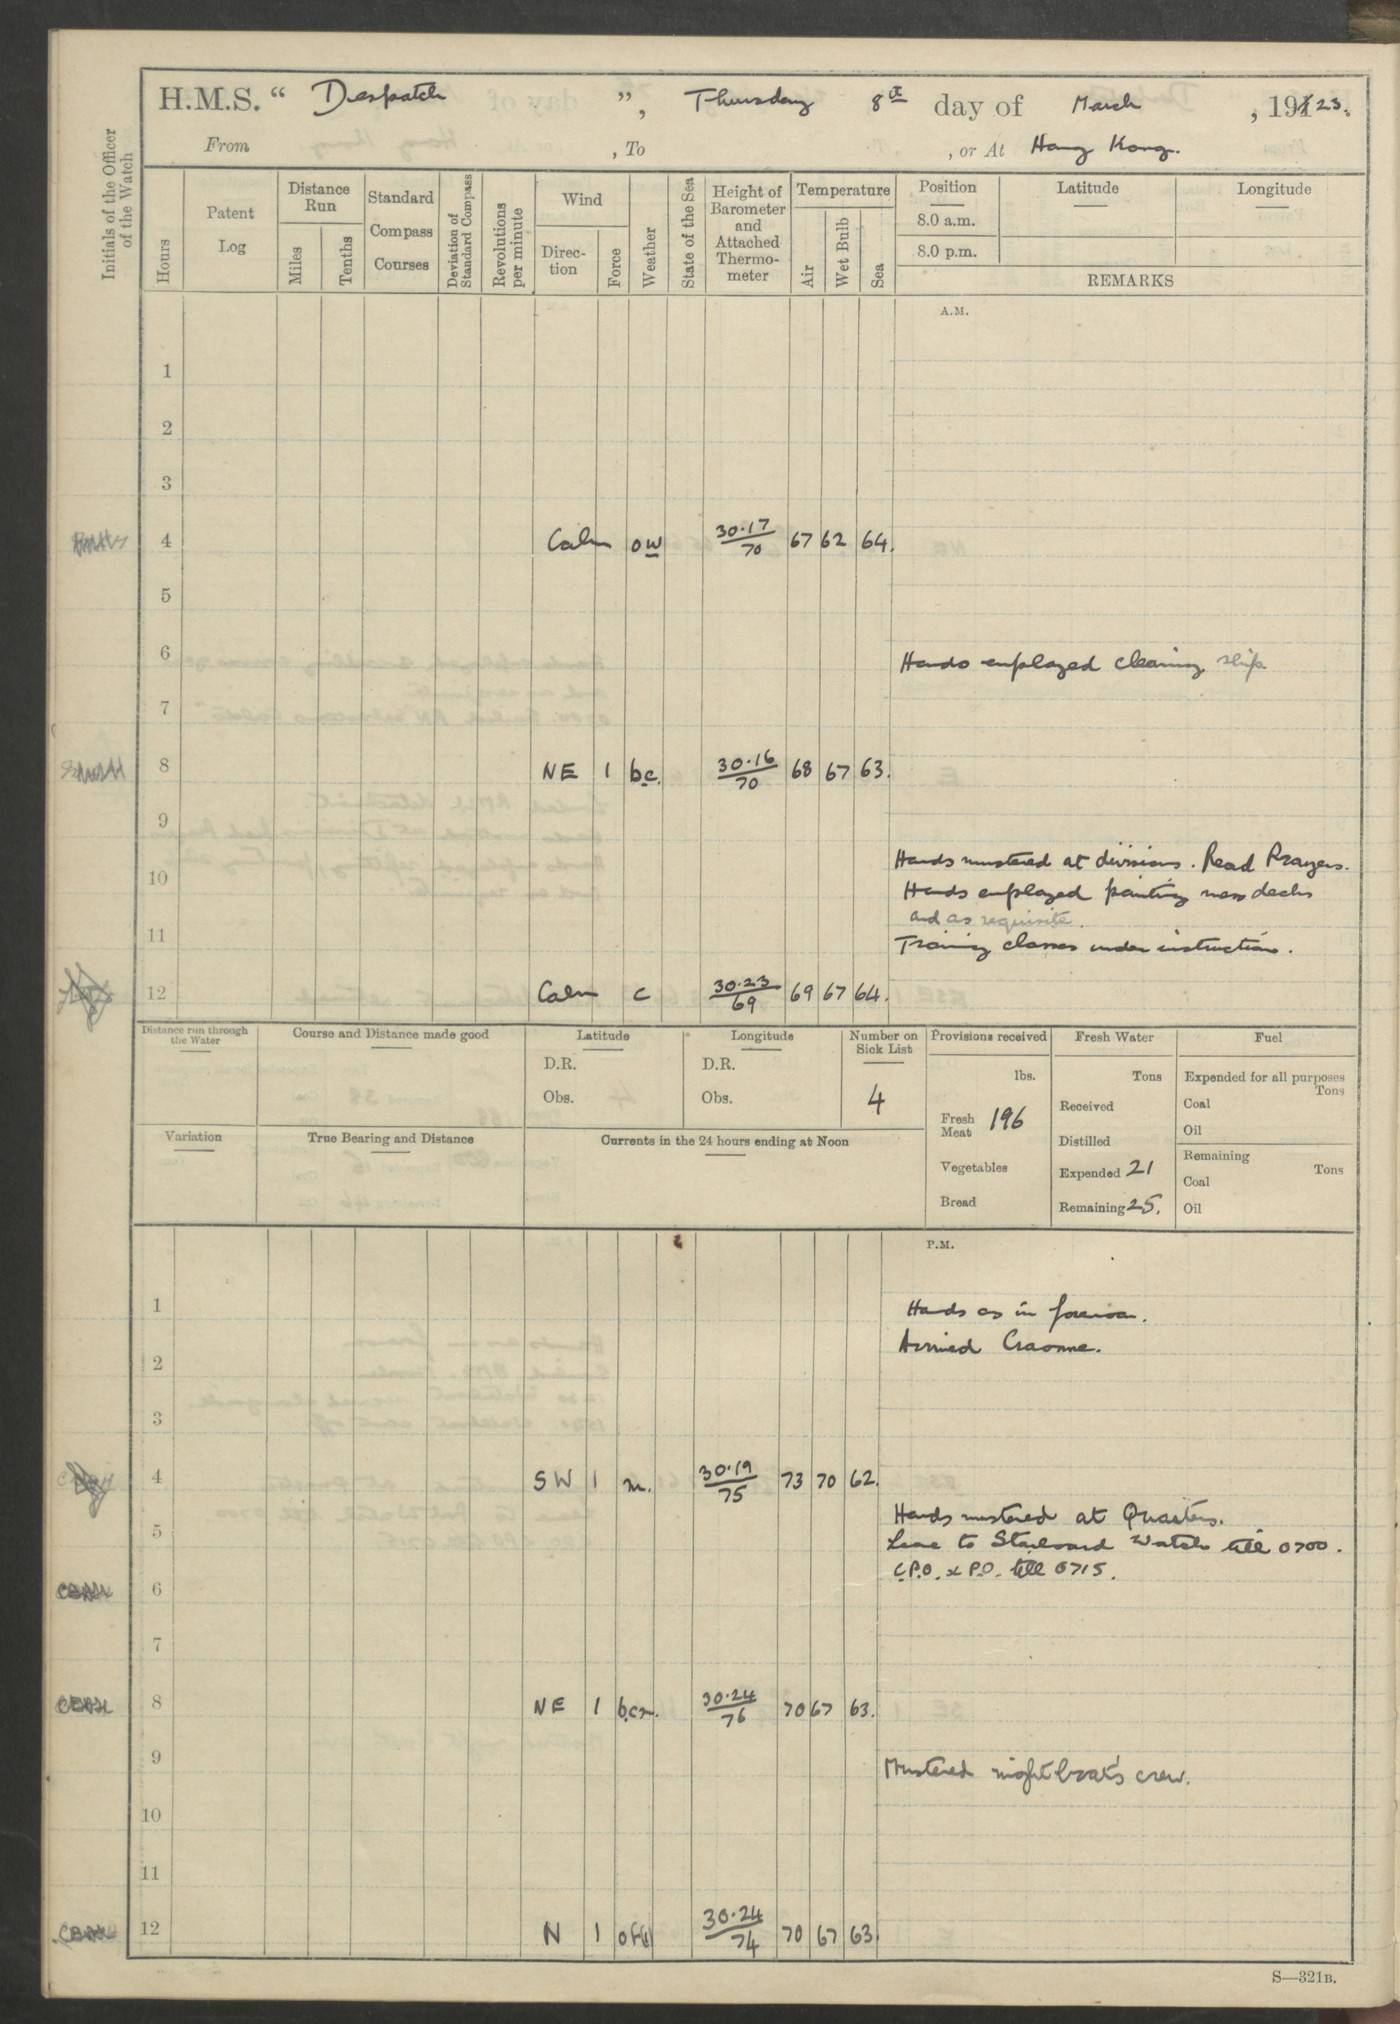 H.M.S. “ Despatch ”, Thursday 8th day of March , 1923.
From , To , or At Hong Kong.
Initials of the Officer of the Watch
Hours
Patent Log
Distance Run
Miles
Tenths
Standard Compass Courses
Deviation of Standard Compass
Revolutions per minute
Wind
Direc-tion
Force
Weather
State of the Sea
Height of Barometer and Attached Thermo-meter
Temperature
Air
Wet Bulb
Sea
Position
8.0 a.m.
8.0 p.m.
Latitude
Longitude
REMARKS
A.M.
1
2
3
4 Calm ow 30.17/70 67 62 64.
5
6 Hands employed cleaning ship
7
8 NE 1 bc. 30.16/70 68 67 63.
9
Hands mustered at divisions. Read Prayers.
10 Hands employed painting mess decks
and as requisite.
11 Training classes under instruction.
12 Calm c 30.23/69 69 67 64.
Distance run through the Water
Course and Distance made good
Latitude
D.R.
Obs.
Longitude
D.R.
Obs.
Number on Sick List
4
Variation
True Bearing and Distance
Currents in the 24 hours ending at Noon
Provisions received
lbs.
Fresh Meat 196
Vegetables
Bread
Fresh Water
Tons
Received
Distilled
Expended 21
Remaining 25.
Fuel
Expended for all purposes
Tons
Coal
Oil
Remaining
Tons
Coal
Oil
P.M.
1 Hands as in forenoon.
Arrived Craonne.
2
3
4 SW 1 m. 30.19/75 73 70 62.
Hands mustered at Quarters.
5 Leave to Starboard Watch till 0700.
C.P.O. & P.O. till 0715.
6
7
8 NE 1 bcm. 30.24/76 70 67 63.
9 Mustered night boat's crew.
10
11
12 N 1 30.24/74 70 67 63
S—321B.